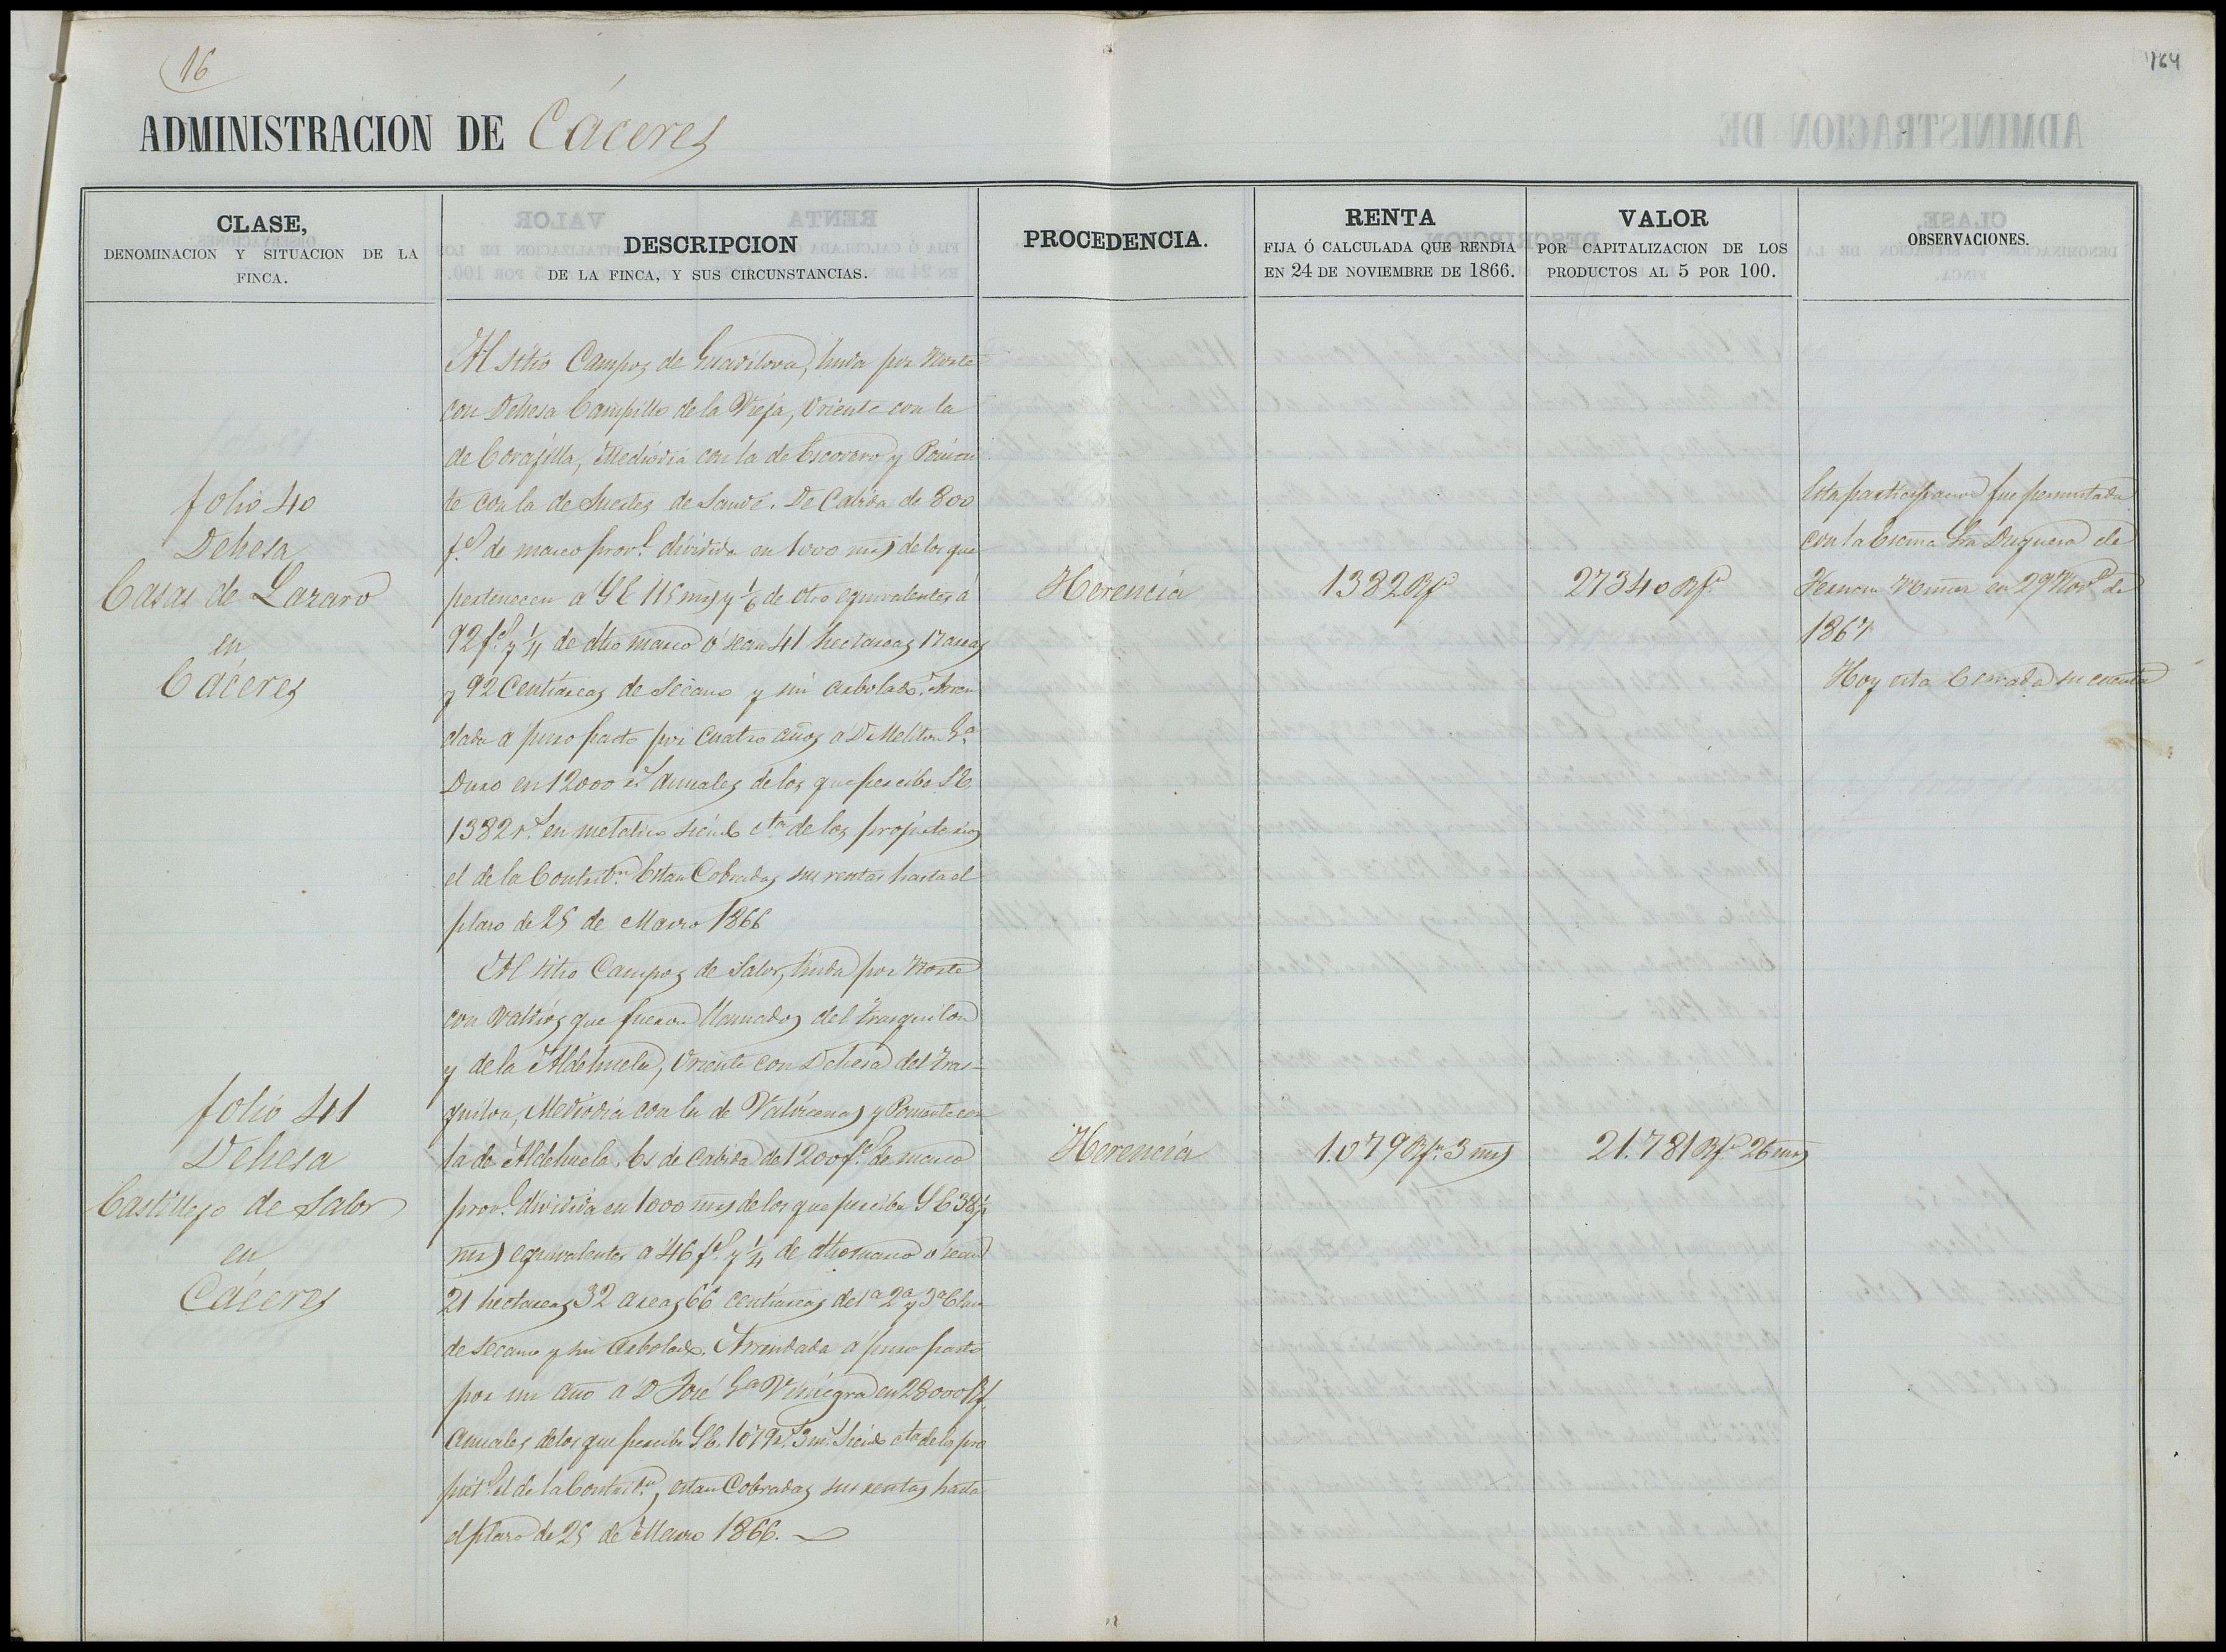 16
164
ADMINISTRACION DE Cáceres
CLASE,
DENOMINACION Y SITUACION DE LA
FINCA.
DESCRIPCION
DE LA FINCA, Y SUS CIRCUNSTANCIAS.
PROCEDENCIA.
RENTA
FIJA Ó CALCULADA QUE RENDIA
EN 24 DE NOVIEMBRE DE 1866.
VALOR
POR CAPITALIZACION DE LOS
PRODUCTOS AL 5 POR 100.
OBSERVACIONES.
folio 40
Dehesa
Casas de Lazaro
en
Cáceres
Al sitio Campos de Guadilova, linda por Norte
con Dehesa Campillo de la Vieja, Oriente con la
de Corajilla, Mediodia con la de Escovero y Ponien
te con la de Suertes de Sande. De Cabida de 800
f.s de marco prov.l dividida en 1000 mrs de los que
pertenecen á S E 115 mrs y 1/6 de otro equivalentes á
92 f.s y 1/4 de dho marco ó sean 41 hectareas 17 areas
y 92 Centiareas de Secano y sin arbolado. Arren
dada a puro pasto por cuatro años a D Meliton G.a
Duro en 12000 r.s Anuales de los que percibe S E.
1382 r.s en metalico siendo cta de los propietarios
el de la Contribn. Estan Cobradas sus rentas hasta el
plazo de 25 de Marzo 1866
Herencia
1382 Rs
27340 Rs
Esta participacion fue permutada
con la Excma Sra Duquesa de
Fernan Nuñez en 29 Novbe de
1867
Hoy esta Cerrada su cuenta
folio 41
Dehesa
Castillejo de Salor
en
Cáceres
Al sitio Campos de Salor, linda por Norte
con valdios que fueron llamados del Trasquilon
y de la Aldehuela, Oriente con Dehesa del Tras-
quilon, Mediodia con la de y Poniente con
la de Aldehuela. Es de Cabida de 1200 f.s de marco
prov.l dividida en 1000 mrs de los que percibe S E 38 1/2
mrs equivalentes a 46 f.s y 1/4 de dho marco o sean
21 hectareas 32 areas 66 centiareas de 1a 2a y 3a Clase
de secano y sin arbolado. Arrendada a puro pasto
por un año a D José Ga Viniegra en 28000 Rs.
Anuales de los que percibe S.E. 1079 r.s 3 m.s siendo cta de los pro
piet.s el de la Contribn, estan Cobradas sus rentas hasta
el plazo de 25 de Marzo 1866.
Herencia
1.079 Rs 3 mrs
21.781 Rs 26 mrs